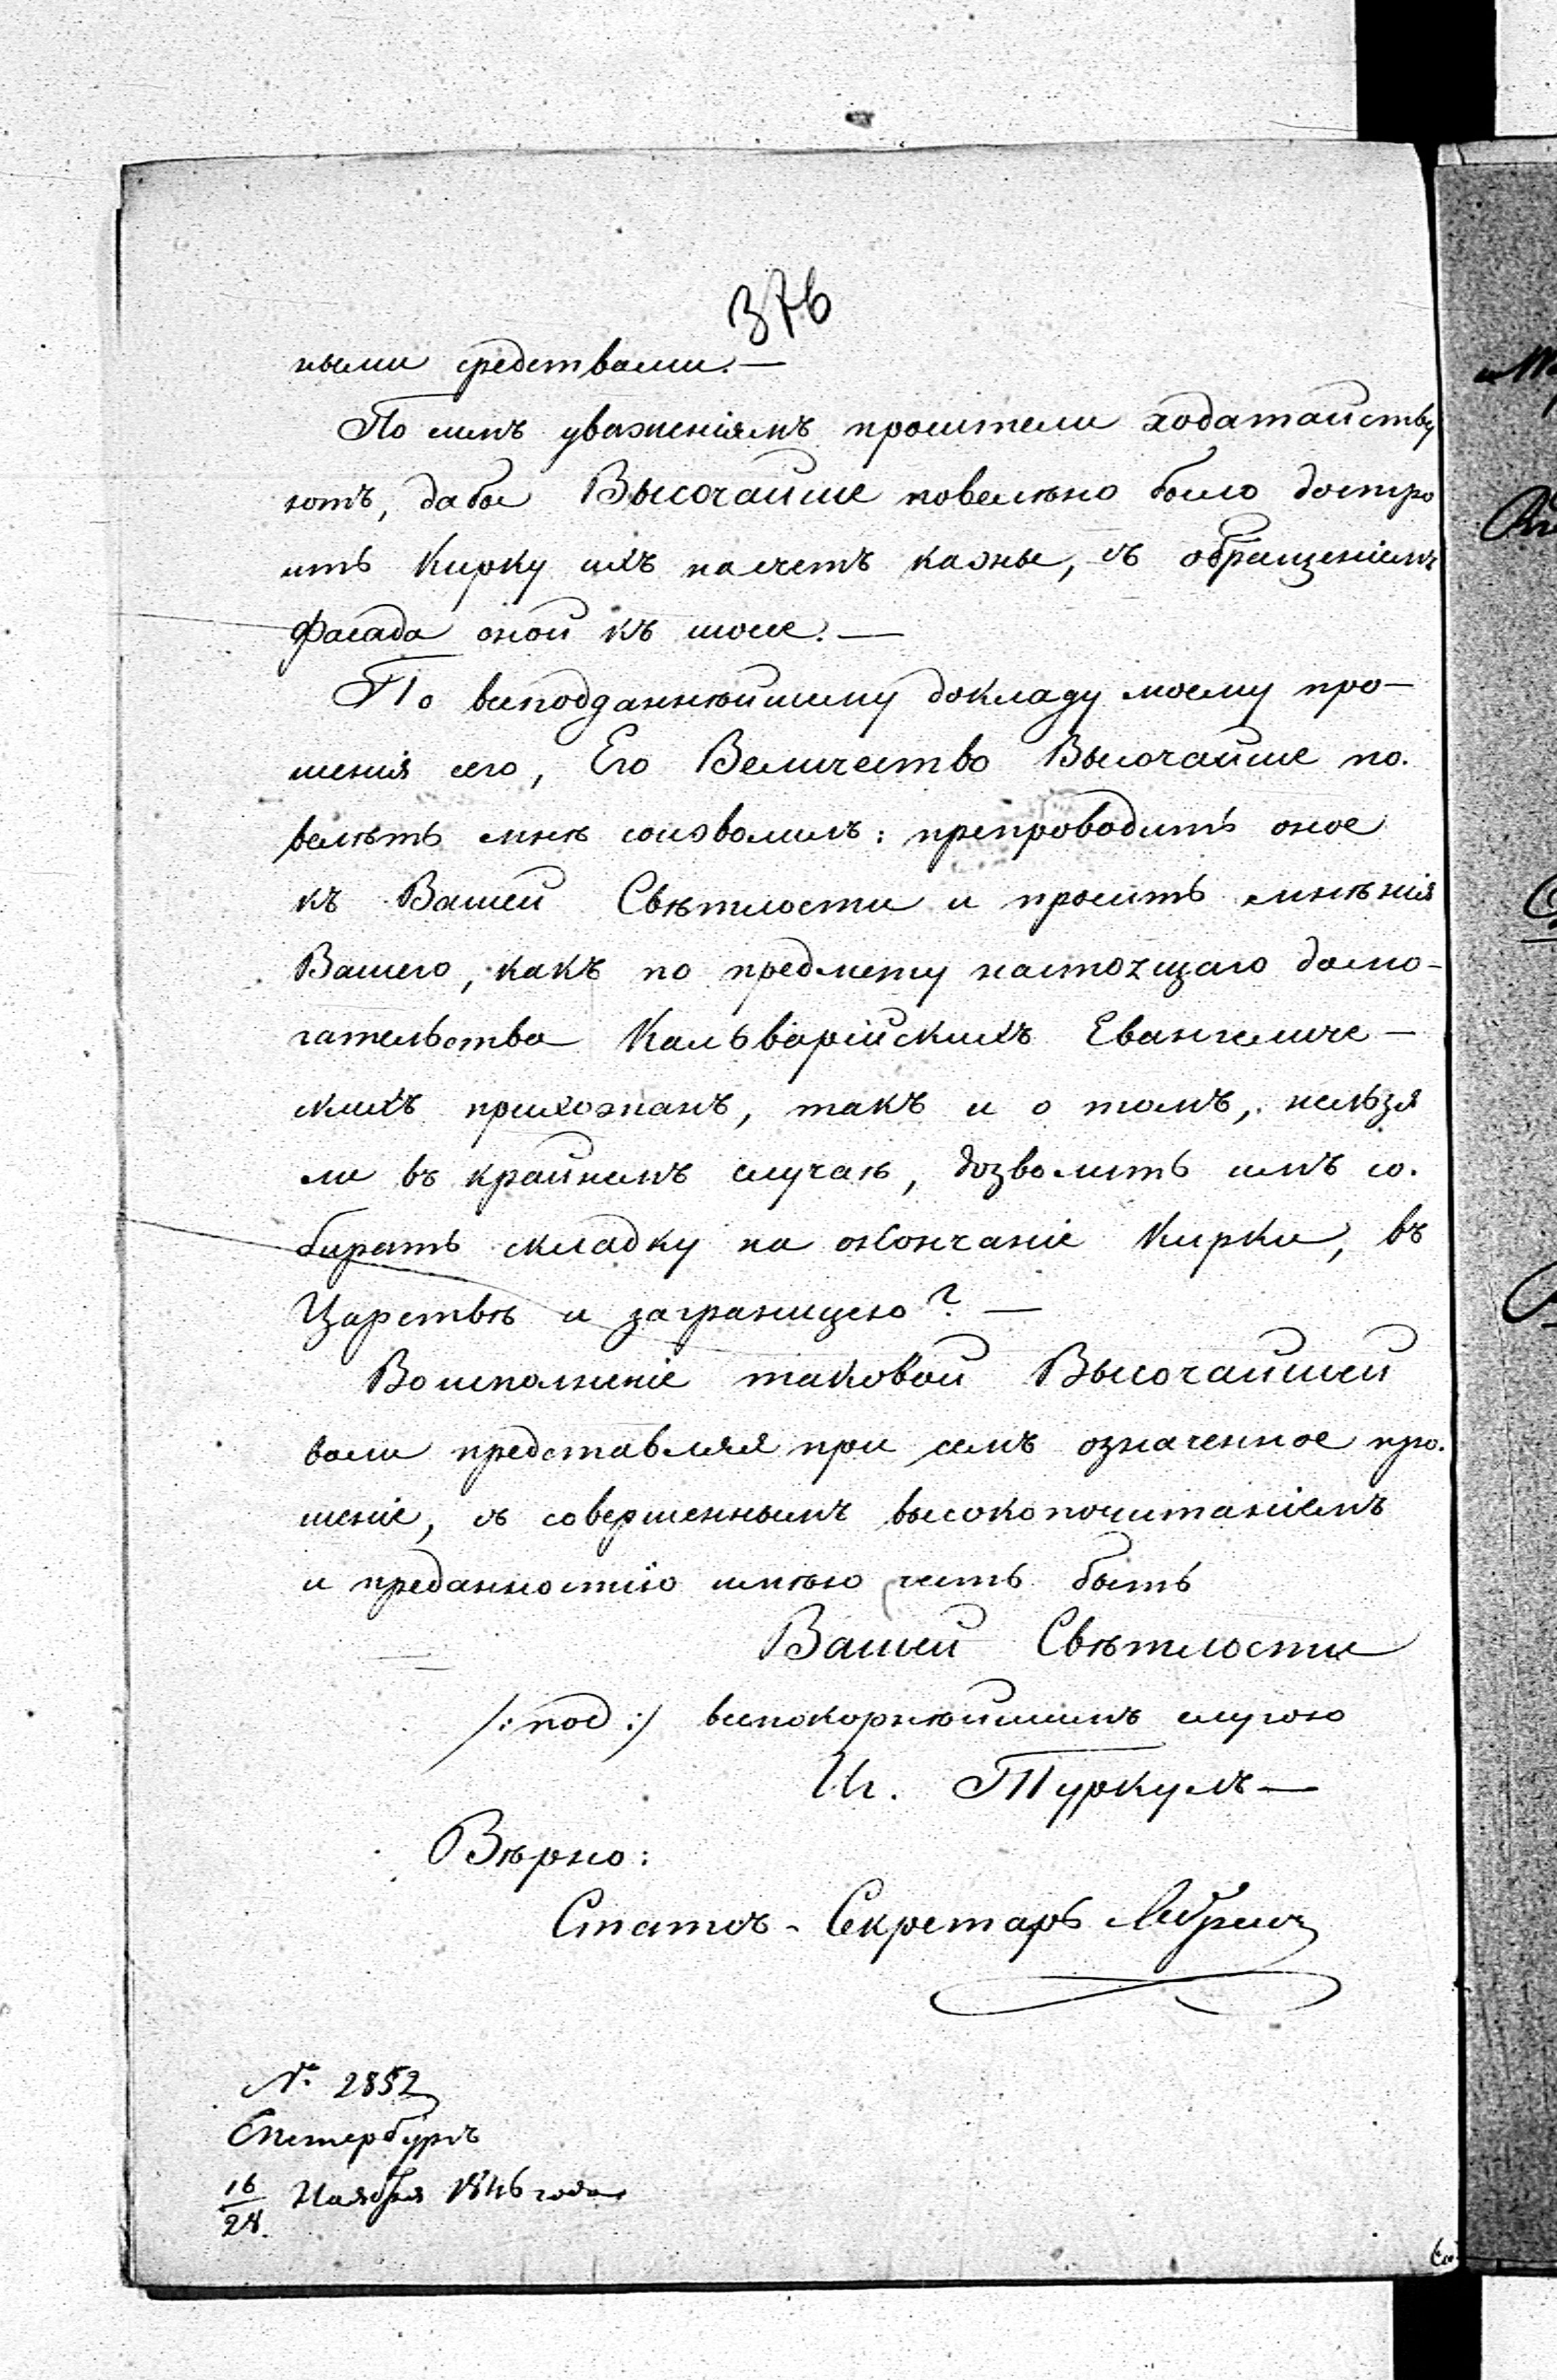 376
ными средствами.—
По симъ уваженіямъ просители ходатайству
ютъ, дабы Высочайше повелѣно было достро
ить Кирку ихъ насчетъ казны, съ обращеніемъ
фасада оной къ шоссе.—
По всеподданнѣйшему докладу моему про-
шенія сего, Его Величество Высочайше по.
велѣть мнѣ соизволилъ: препроводить оное
къ Вашей Свѣтлости и просить мнѣнія
Вашего, какъ по предмету настоящаго домо-
гательства Кальварійскихъ Евангеличе-
скихъ прихожанъ, такъ и о томъ, нельзя
ли въ крайнемъ случаѣ, дозволить имъ со.
бирать складку на окончаніе Кирки, въ
Царствѣ и заграницею?—
Во исполненіе таковой Высочайшей
воли представляя при семъ означенное про.
шеніе, съ совершеннымъ высокопочитаніемъ
и преданностію имѣю честь быть
Вашей Свѣтлости
/:под:/ всепокорнѣйшимъ слугою
Иг. Туркулъ—
Вѣрно:
Статсъ-Секретарь
№ 2852
СПетербургъ
16/28 Ноября 1846 года